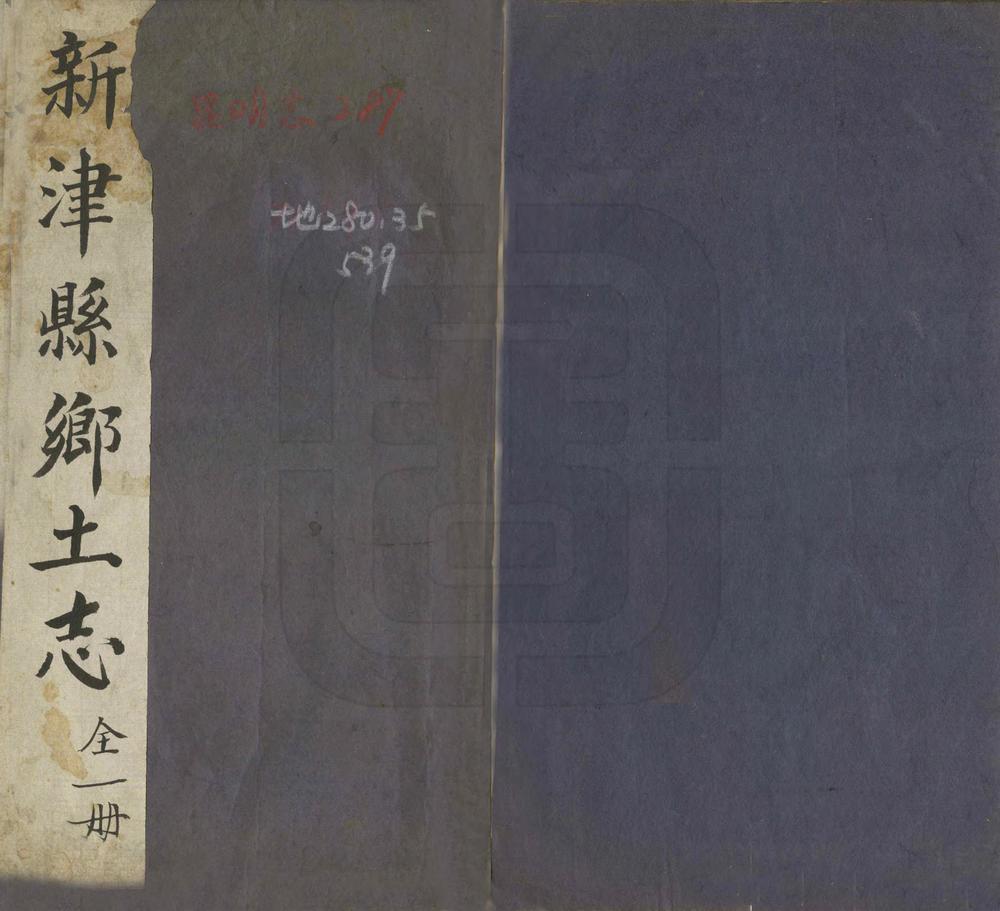 新津縣鄉土志
全一册
昆明志287
地280.35
539